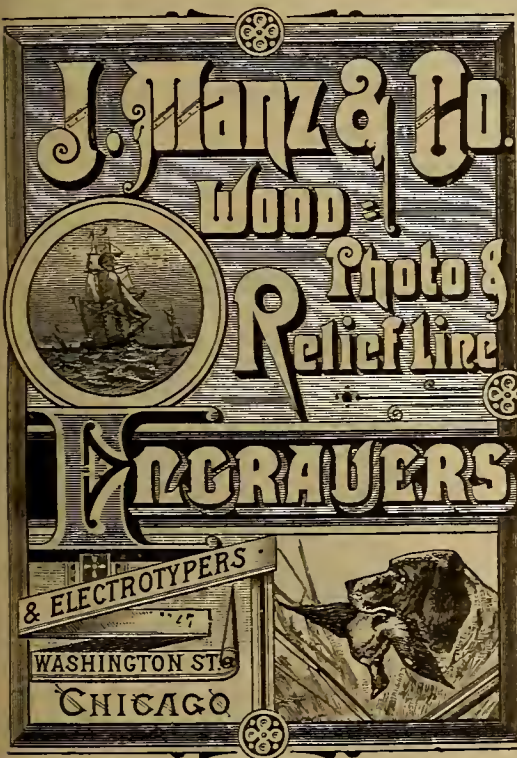 J. Manz & Co.
Wood =
Photo &
Relief Line
Engravers
& ELECTROTYPERS
WASHINGTON ST.
CHICAGO